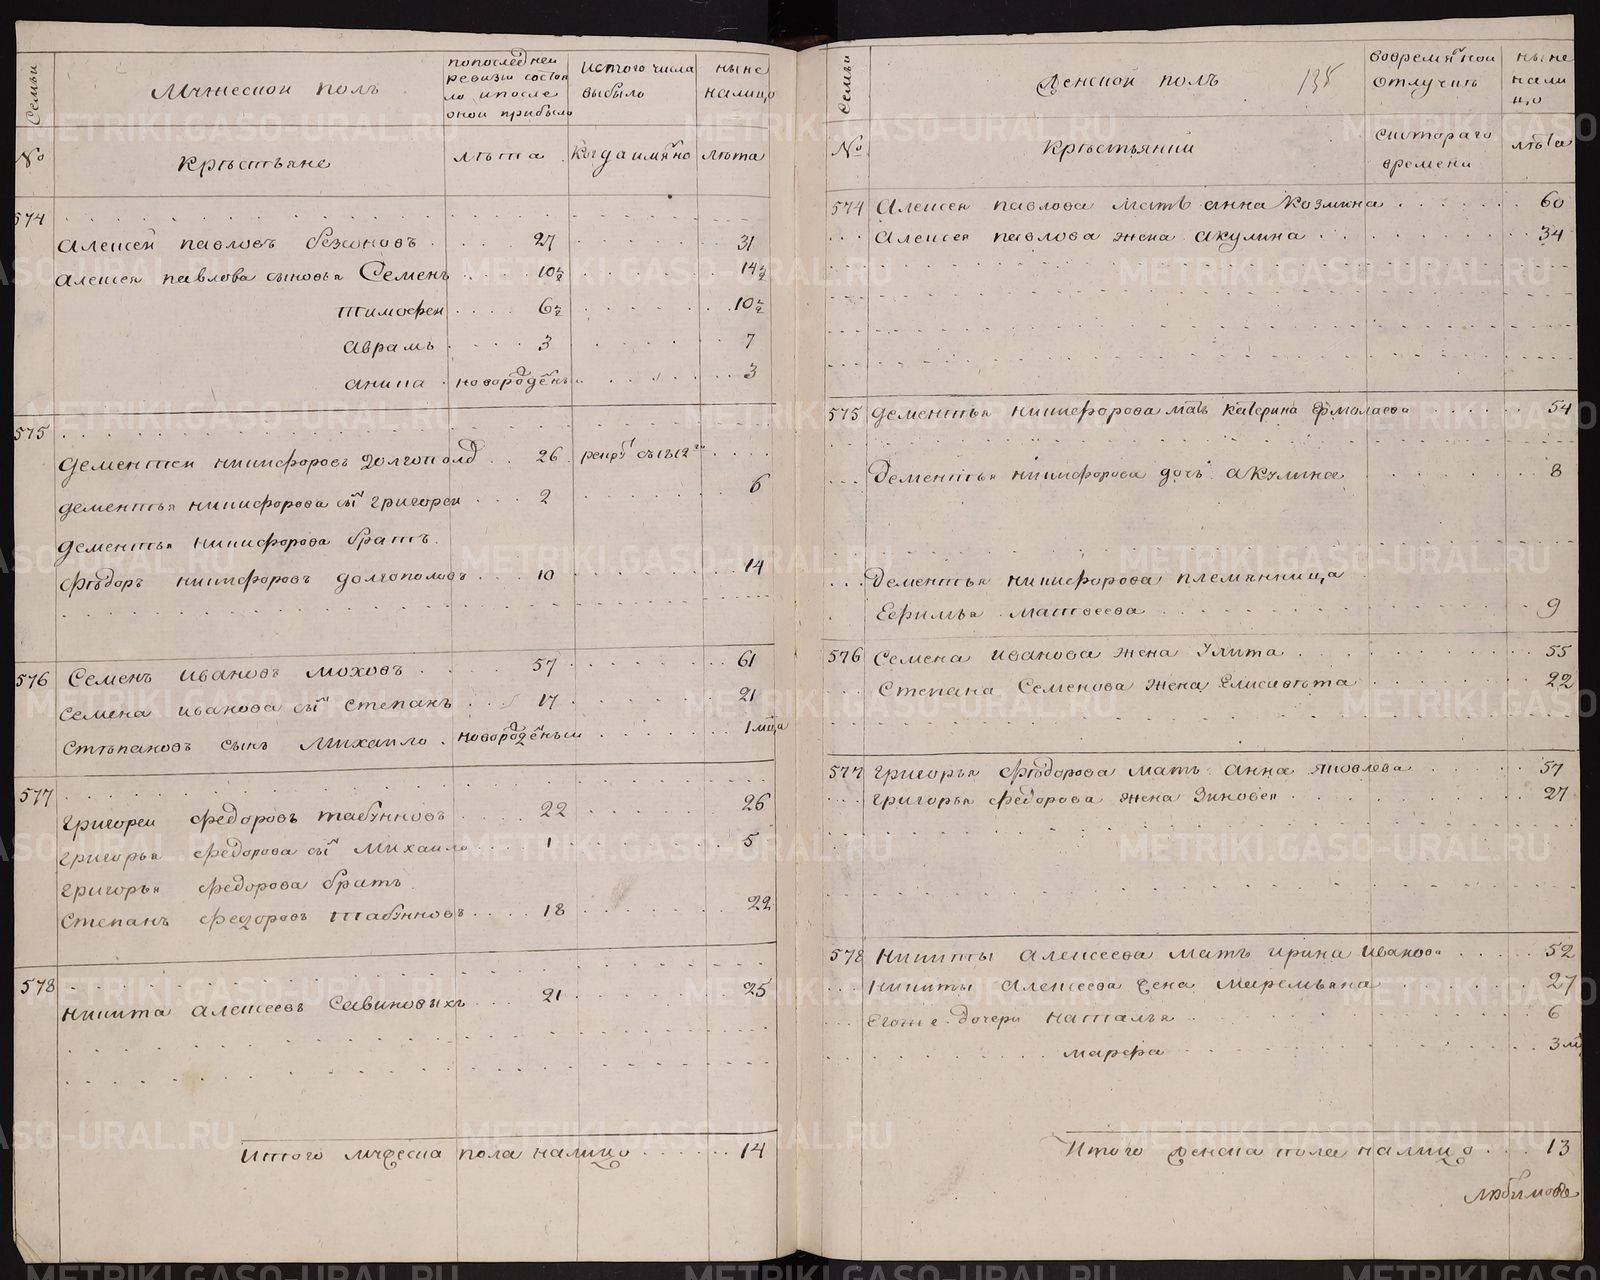 Семьи
Мужеской полъ
попоследней ревизи состояло ипосле оной прибыло
Истого числа выбыло
ныне налицо
№
Крѣстьяне
лѣта
Когда имянно
лѣта
574
Алексей павловъ безсоновъ 27 31
Алексея павлова сыновья Семенъ 10 1/2 14 1/2
Тимофеи 6 1/2 10 1/2
Аврамъ 3 7
аника новорожденъ 3
575
Дементеи никифоровъ Долгополо 26 рекру съ 1812 го
дементья никифорова сынъ григореи 2 6
дементья никифорова братъ
Фѣдоръ никифоровъ долгополовъ 10 14
576 Семенъ ивановъ моховъ 57 61
Семена иванова сынъ степанъ 17 21
Стѣпановъ сынъ Михаило новорожденыи 1 мца
577
григореи федоровъ табунновъ 22 26
григорья федорова сынъ Михаило 1 5
григорья федорова братъ
Степанъ федоровъ Табунновъ 18 22
578
никита алексеевъ Савиновыхъ 21 25
Итого мужеска пола налицо 14
Семьи
Женской полъ
135
вовремянной отлучкѣ
ныне налицо
№
Крѣстьянки
скотораго времени
лѣта
574 Алексея павлова мать анна Козмина 60
Алексея павлова жена акулина 34
575 дементья никифорова мать катерина ермолаева 54
Дементья никифорова дочь акулина 8
Дементья никифорова племянница
Ефимья матвеева 9
576 Семена иванова жена Улита 55
Степана Семенова жена Елисавѣта 22
577 григорья фѣдорова мать анна яковлева 57
григорья федорова жена Зиновея 27
578 никиты алексеева мать ирина иванова 52
никиты алексеева жена маремьяна 27
Егоже дочери наталья 6
марфа 3 мц
Итого женска пола налицо 13
METRIKI.GASO-URAL.RU